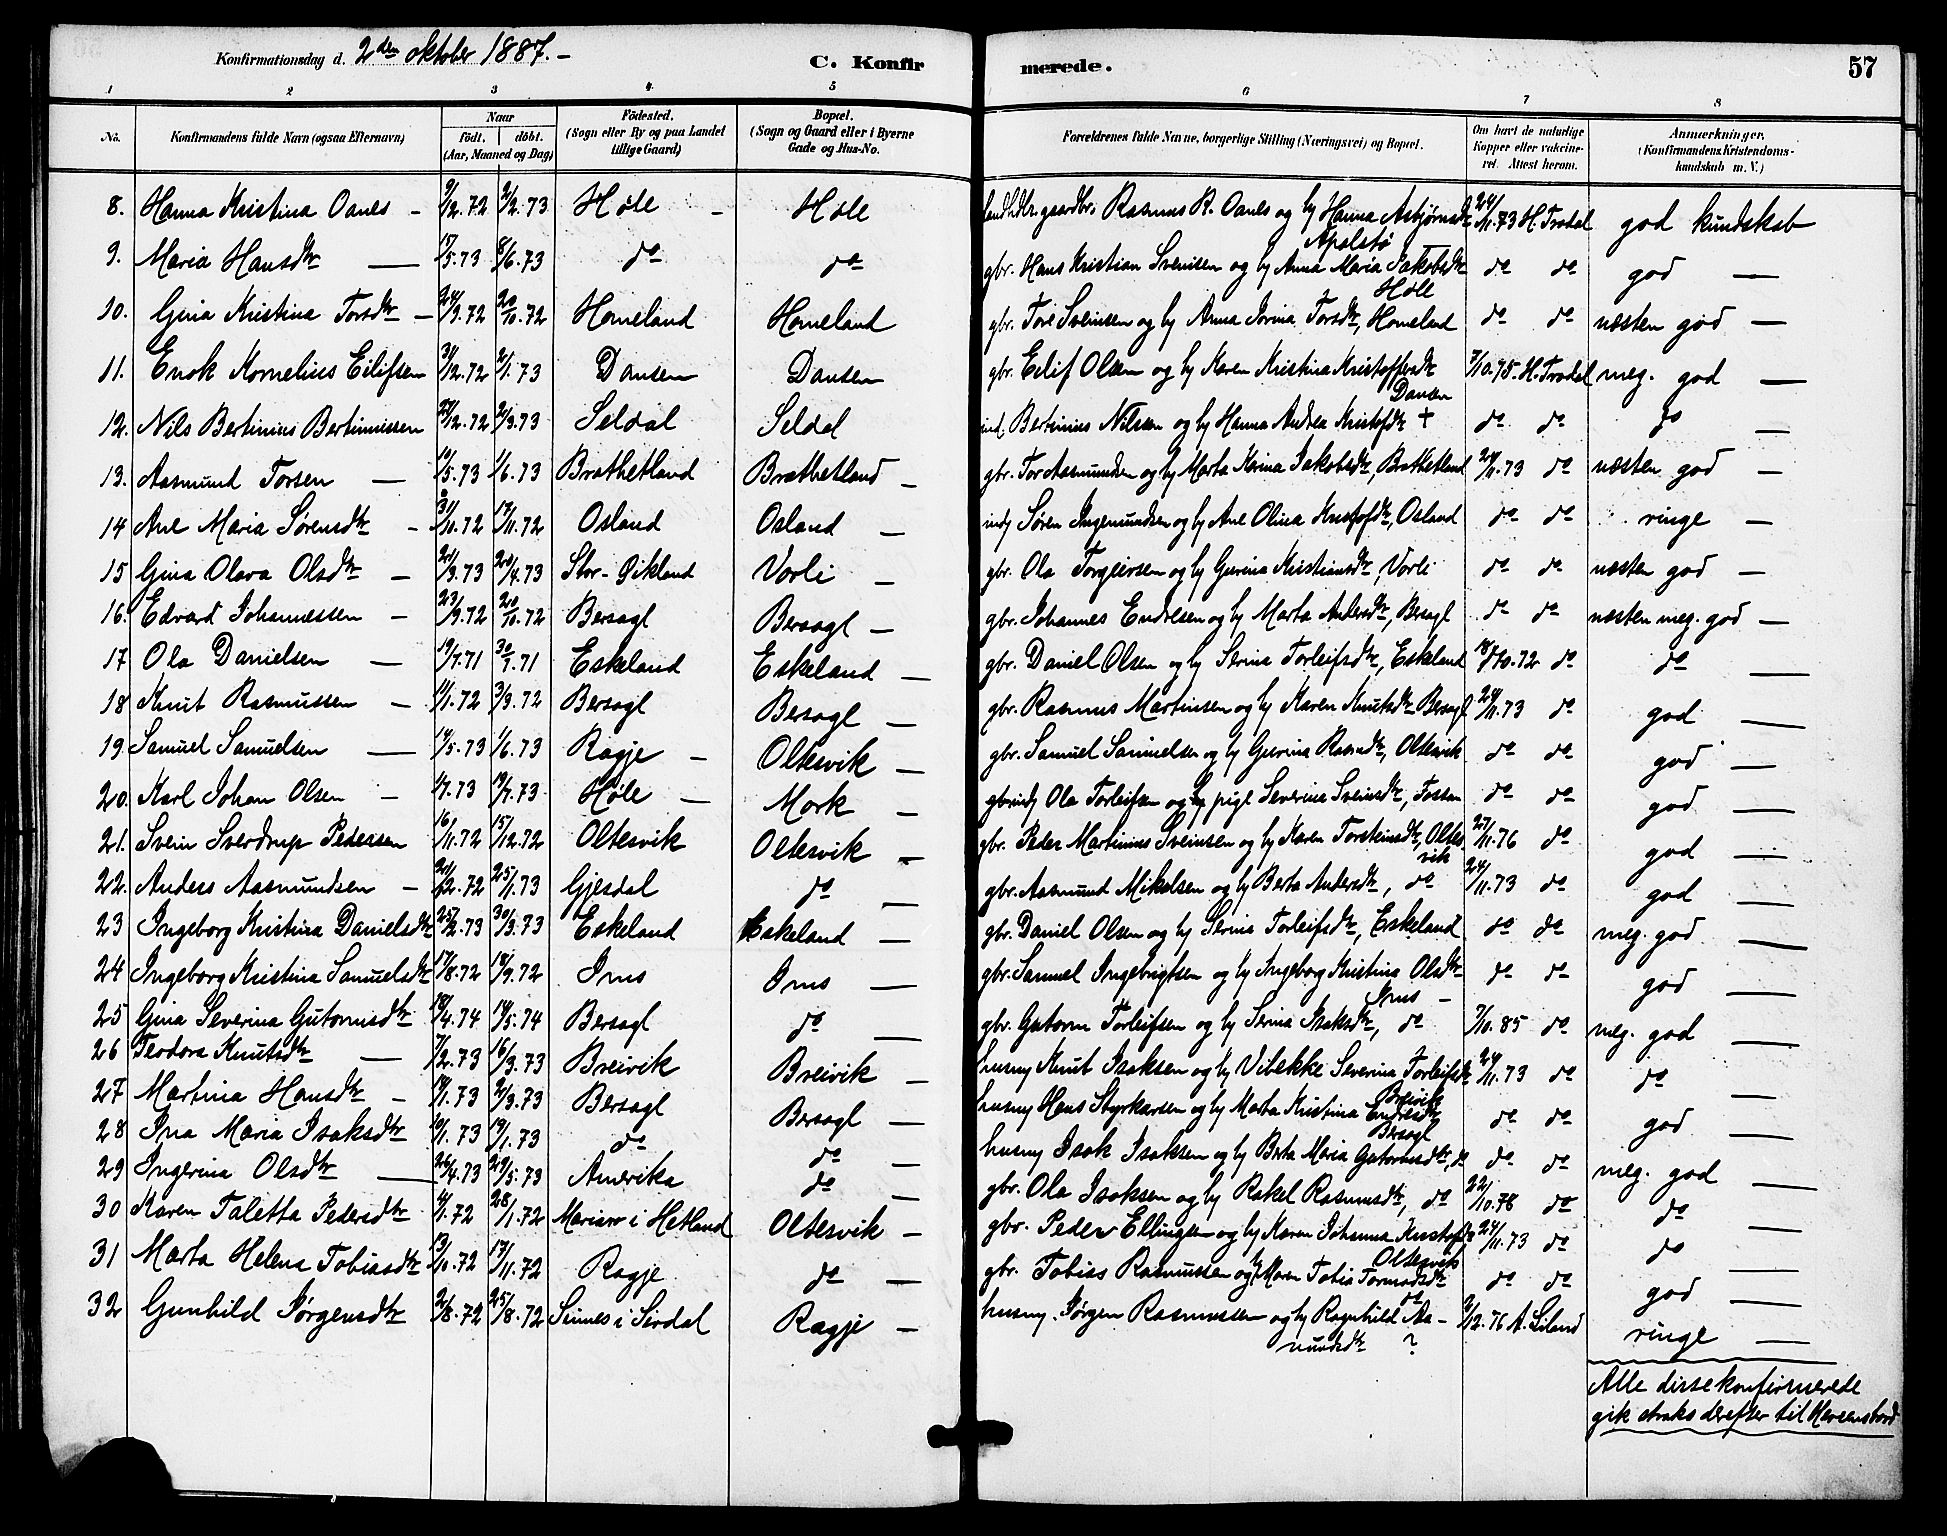 Konfirmationsdag d. 2den oktober 1887. –
C. Konfirmerede.
57
1 2 3 4 5 6 7 8
No. Konfirmandens fulde Navn (ogsaa Efternavn) Naar födt. döbt. (Aar, Maaned og Dag) Födested. (Sogn eller By og paa Landet tillige Gaard) Bopæl. (Sogn og Gaard eller i Byerne Gade og Hus-No. Forældrenes fulde Navne, borgerlige Stilling (Næringsvei) og Bopæl. Om havt de naturlige Kopper eller vakcineret. Attest herom. Anmærkninger. (Konfirmandens Kristendomskundskab m. V.)
8. Hanna Kristina Oanes – 9/12.72 2/2.73 Høle – Høle landhdlr. gaardbr. Rasmus R. Oanes og h Hanna Asbjørnsdtr 24/11.73 H. Tradal god kundskab
Apalstø
9. Maria Hansdtr — 15/5.73 8/6.73 do do gbr. Hans Kristian Svensen og h Anna Maria Jakobsdtr do do god —
Høle
10. Gina Kristina Torsdtr – 24/9.72 20/10.72 Homeland Homeland gbr. Tore Sveinsen og h Anna Torsdtr, Homeland do do næsten god —
11. Enok Kornelius Eilifsen 31/12.72 2/1.73 Dansen Dansen gbr. Eilif Olsen og h Karen Kristina Kristoffersdtr 7/10.75. H. Tradal meg. god —
Dansen
12. Nils Bertinius Bertinussen 27/12.72 2/3.73 Seldal Seldal ind. Bertinius Nilssen og h Hanna Andrea Kristofsdtr + do do do —
13. Aasmund Torsen — 10/5.73 1/6.73 Brathetland Brathetland – gbr. Tor Aasmundsen og h Marta Karina Jakobsdtr, Brathetland 24/11.73 do næsten god –
14 Ane Maria Sørensdtr – 3/11.72 17/11.72 Osland Osland – ind Søren Ingemundsen og h Ane Olina Kristofsdtr, Osland do do ringe –
15 Gina Olava Olsdtr – 21/3.73 20/4.73 Stor-Øikland Vorli – gbr. Ola Torgeirsen og h Gurina Kristiansdtr, Vorli do do næsten god –
16. Edvard Johannessen – 23/9.72 20/10.72 Bersagl Bersagl – gbr. Johannes Endresen og h Marta Andersdtr, Bersagl do do næsten meg. god –
17 Ola Danielsen — 19/7.71 30/7.71 Eskeland Eskeland — gbr. Daniel Olsen og h Serina Torleifsdtr, Eskeland 18/10.72 do do —
18 Knut Rasmussen – 11/1.72 3/3.72 Bersagl Bersagl – gbr. Rasmus Martinsen og h Karen Knutsdtr Bersagl 24/11.73 do god —
19. Samuel Samuelsen — 14/5.73 1/6.73 Ragje – Oltesvik – gbr. Samuel Samuelsen og h Gurina Rasmdtr, Oltesvik do do god —
20. Karl Johan Olsen – 4/7.73 19/7.73 Høle – Mork – gbrind Ola Torleifsen og pige Severina Sveinsdtr, Fossan do do god —
21. Svein Sverdrup Pedersen 16/11.72 15/12.72 Oltesvik Oltesvik – gbr. Peder Martinius Sveinsen og h Karen Torsteinsdtr, Oltesvik 27/11.76 do god —
22. Anders Aasmundsen – 21/12.72 25/1.73 Gjesdal do — gbr. Aasmund Mikalsen og h Berta Andersdtr, do 24/11.73 do god —
23 Ingeborg Kristina Danielsdtr 25/2.73 30/3.73 Eskeland Eskeland – gbr. Daniel Olsen og h Serina Torleifsdtr, Eskeland do do meg. god —
24 Ingeborg Kristina Samuelsdtr 17/8.72 18/9.72 Ims Ims — gbr. Samuel Ingebrigtsen og h Ingeborg Kristina Olsdtr do do god —
Ims –
25 Gina Severina Gutormsdtr 18/4.74 14/5.74 Bersagl do — gbr. Gutorm Torleifsen og h Serina Isaksdtr, do 7/10.85 do meg. god —
26 Teodora Knutsdtr — 7/2.73 16/3.73 Breivik Breivik – husmy Knut Isaksen og h Vibekke Severina Torleifsdtr 24/11.73 do do —
Breivik
27 Martina Hansdtr – 19/1.73 2/3.73 Bersagl Bersagl – husmy Hans Styrkarsen og h Marta Kristina Endresdtr do do god —
Bersagl
28 Ina Maria Isaksdtr 10/1.73 19/1.73 do do – husmy Isak Isaksen og h Berta Maria Gutormsdtr, do do do meg. god —
29 Ingerina Olsdtr — 26/4.73 29/5.73 Amerika do – gbr. Ola Isaksen og h Rakel Rasmusdtr, do 22/10.78 do do —
30 Karen Taletta Pedersdtr 4/1.72 28/1.72 i Hetland Oltesvik – gbr. Peder Ellingsen og h Karen Johanna Kristofsdtr 24/11.73 do do —
Oltesvik
31 Marta Helena Tobiasdtr 13/10.72 17/11.72 Ragje do – gbr. Tobias Rasmussen og h Maren Tobia Tormodsdtr do do god —
do
32 Gunhild Jørgensdtr 2/8.72 25/8.72 Sinnes i Sirdal Ragje – husmy. Jørgen Rasmussen og h Ragnhild Aa- 2/12.76 A. Liland ringe —
nundsdtr ?
Alle disse konfirmerede
gik straks derefter til Herrens bord